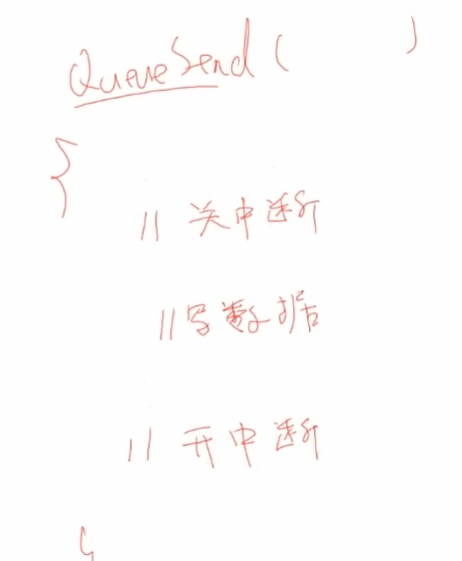 QueueSend (       )
{
// 关中断
// 写数据
// 开中断
}